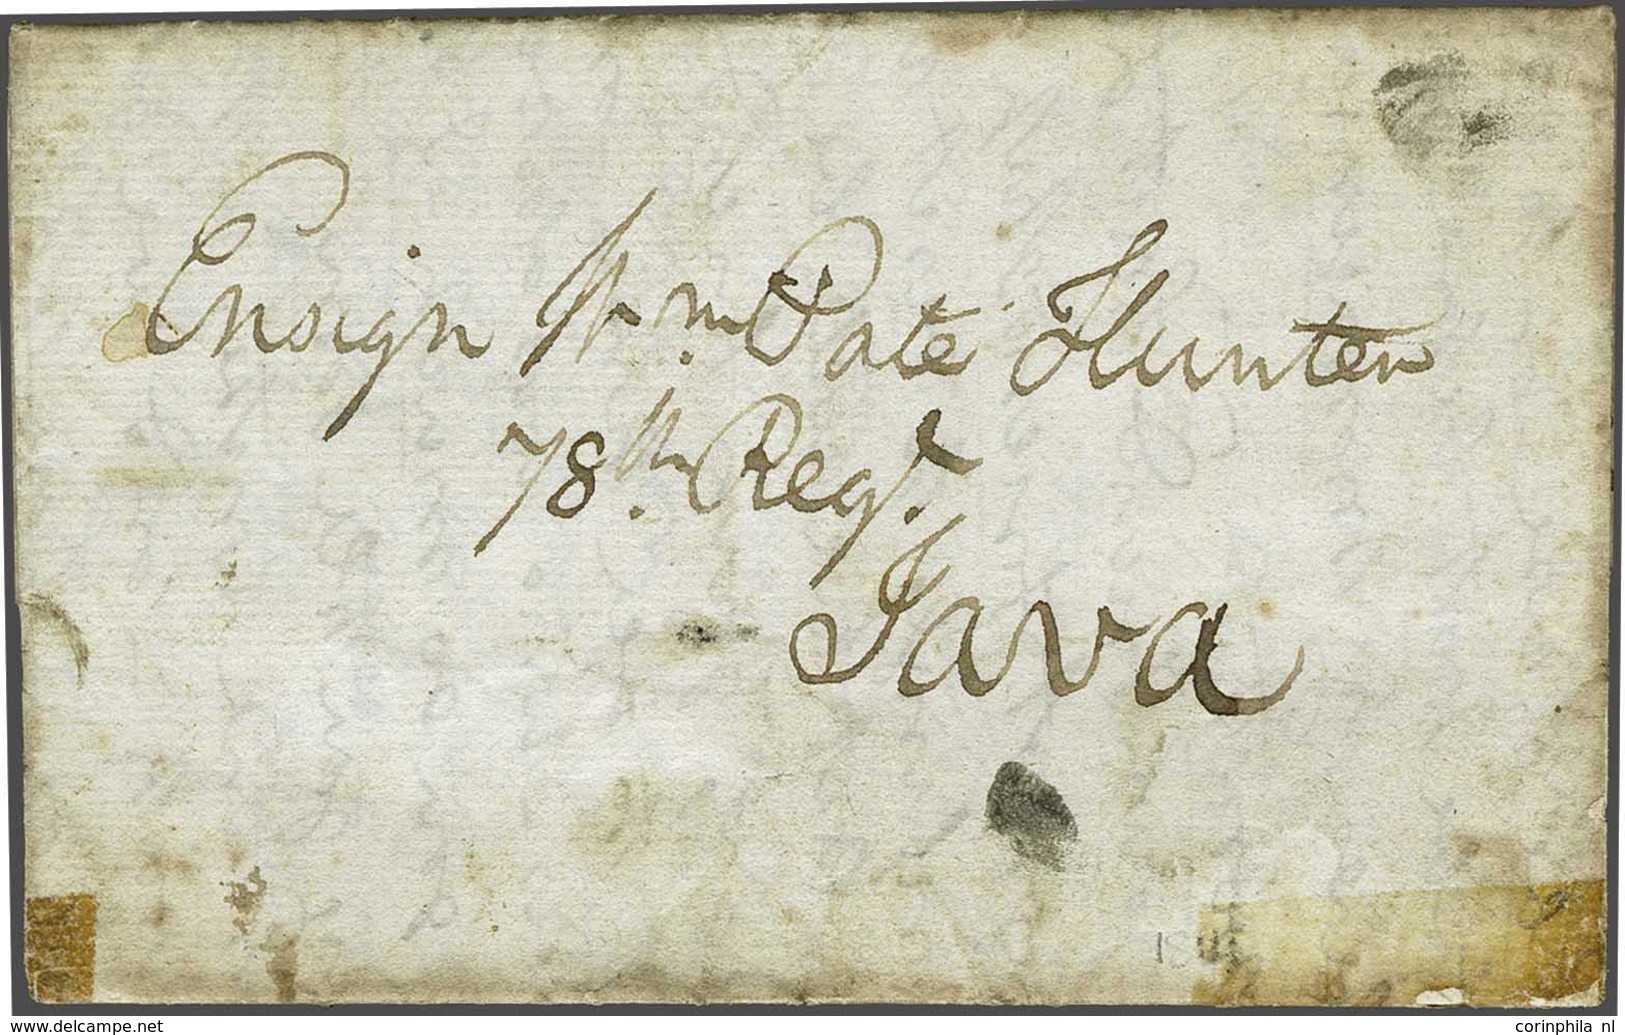 Ensign Wm. Pate Hunter
78th. Regt.
Java
www.delcampe.net
corinphila nl